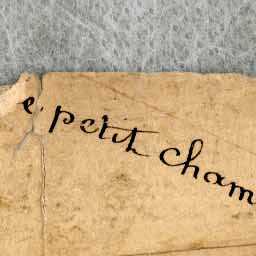 e petit cham